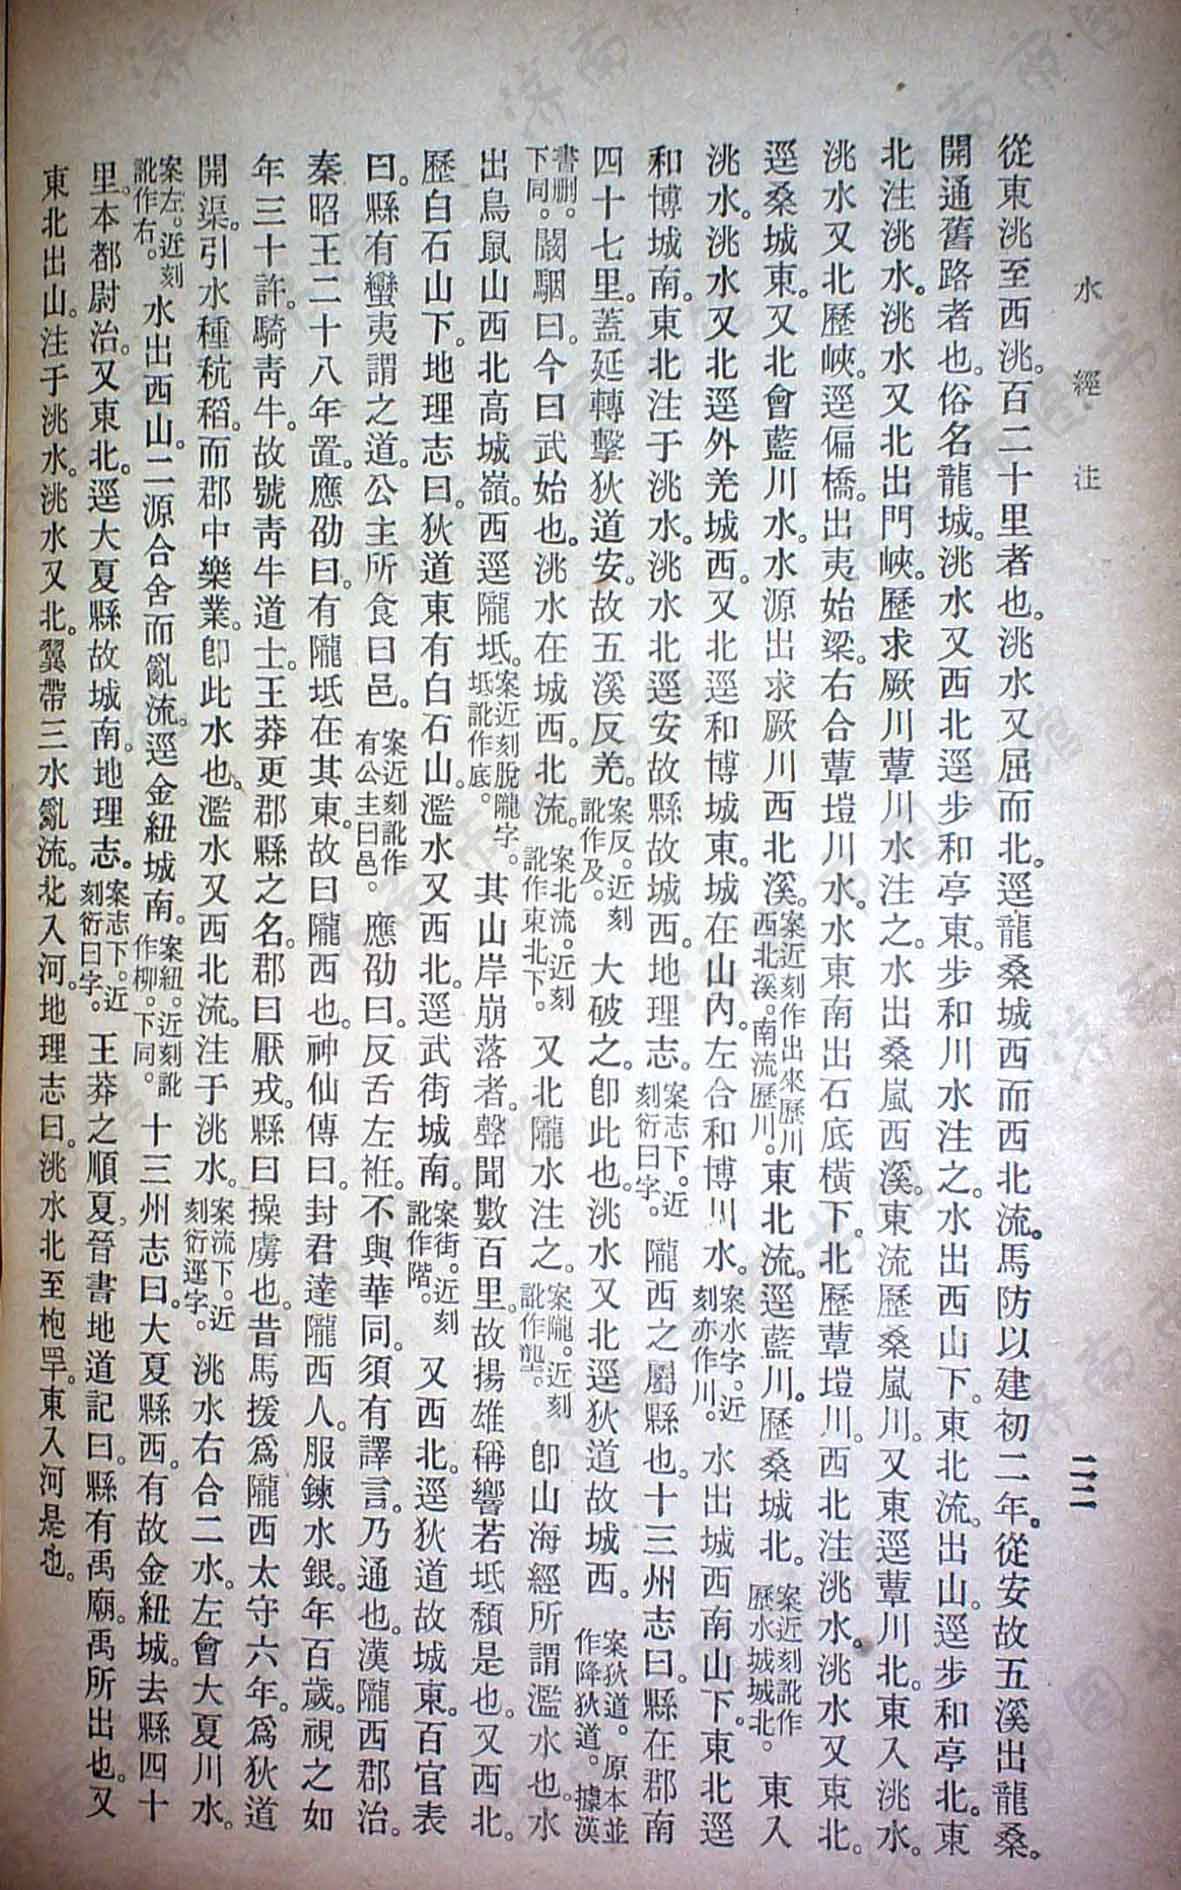 水經注
二二
從東洮至西洮。百二十里者也。洮水又屈而北。逕龍桑城西而西北流。馬防以建初二年。從安故五溪出龍桑。
開通舊路者也。俗名龍城。洮水又西北逕步和亭東。步和川水注之。水出西山下。東北流。出山。逕步和亭北。東
北注洮水。洮水又北出門峽。歷求厥川蕈川水注之。水出桑嵐西溪。東流歷桑嵐川。又東逕蕈川北。東入洮水。
洮水又北歷峽。逕偏橋。出夷始梁。右合蕈塏川水。水東南出石底橫下。北歷蕈塏川。西北注洮水。洮水又東北。
逕桑城東。又北會藍川水。水源出求厥川西北溪。案近刻作出來歷川西北溪。南流歷川。東北流。逕藍川。歷桑城北。案近刻訛作歷水城城北。東入
洮水。洮水又北逕外羌城西。又北逕和博城東。城在山內。左合和博川水。案水字。近刻亦作川。水出城西南山下。東北逕
和博城南。東北注于洮水。洮水北逕安故縣故城西。地理志。案志下。近刻衍曰字。隴西之屬縣也。十三州志曰。縣在郡南
四十七里。蓋延轉擊狄道安。故五溪反羌。案反。近刻訛作及。大破之。卽此也。洮水又北逕狄道故城西。案狄道。原本並作降狄道。據漢
書刪。下同。闞駰曰。今曰武始也。洮水在城西。北流。案北流。近刻訛作東北下。又北隴水注之。案隴。近刻訛作壟。卽山海經所謂濫水也。水
出鳥鼠山西北高城嶺。西逕隴坻。案近刻脫隴字。坻訛作底。其山岸崩落者。聲聞數百里。故揚雄稱響若坻頹是也。又西北。
歷白石山下。地理志曰。狄道東有白石山。濫水又西北。逕武街城南。案街。近刻訛作階。又西北。逕狄道故城東。百官表
曰。縣有蠻夷謂之道。公主所食曰邑。案近刻訛作有公主曰邑。應劭曰。反舌左袵。不與華同。須有譯言。乃通也。漢隴西郡治。
秦昭王二十八年置。應劭曰。有隴坻在其東。故曰隴西也。神仙傳曰。封君達隴西人。服鍊水銀。年百歲。視之如
年三十許。騎靑牛。故號靑牛道士。王莽更郡縣之名。郡曰厭戎。縣曰操虜也。昔馬援爲隴西太守六年。爲狄道
開渠。引水種秔稻。而郡中樂業。卽此水也。濫水又西北流。注于洮水。案流下。近刻衍逕字。洮水右合二水。左會大夏川水。
案左。近刻訛作右。水出西山。二源合舍而亂流。逕金紐城南。案紐。近刻訛作柳。下同。十三州志曰。大夏縣西。有故金紐城。去縣四十
里。本都尉治。又東北。逕大夏縣故城南。地理志。案志下。近刻衍曰字。王莽之順夏。晉書地道記曰。縣有禹廟。禹所出也。又
東北出山。注于洮水。洮水又北。翼帶三水亂流。北入河。地理志曰。洮水北至枹罕。東入河是也。